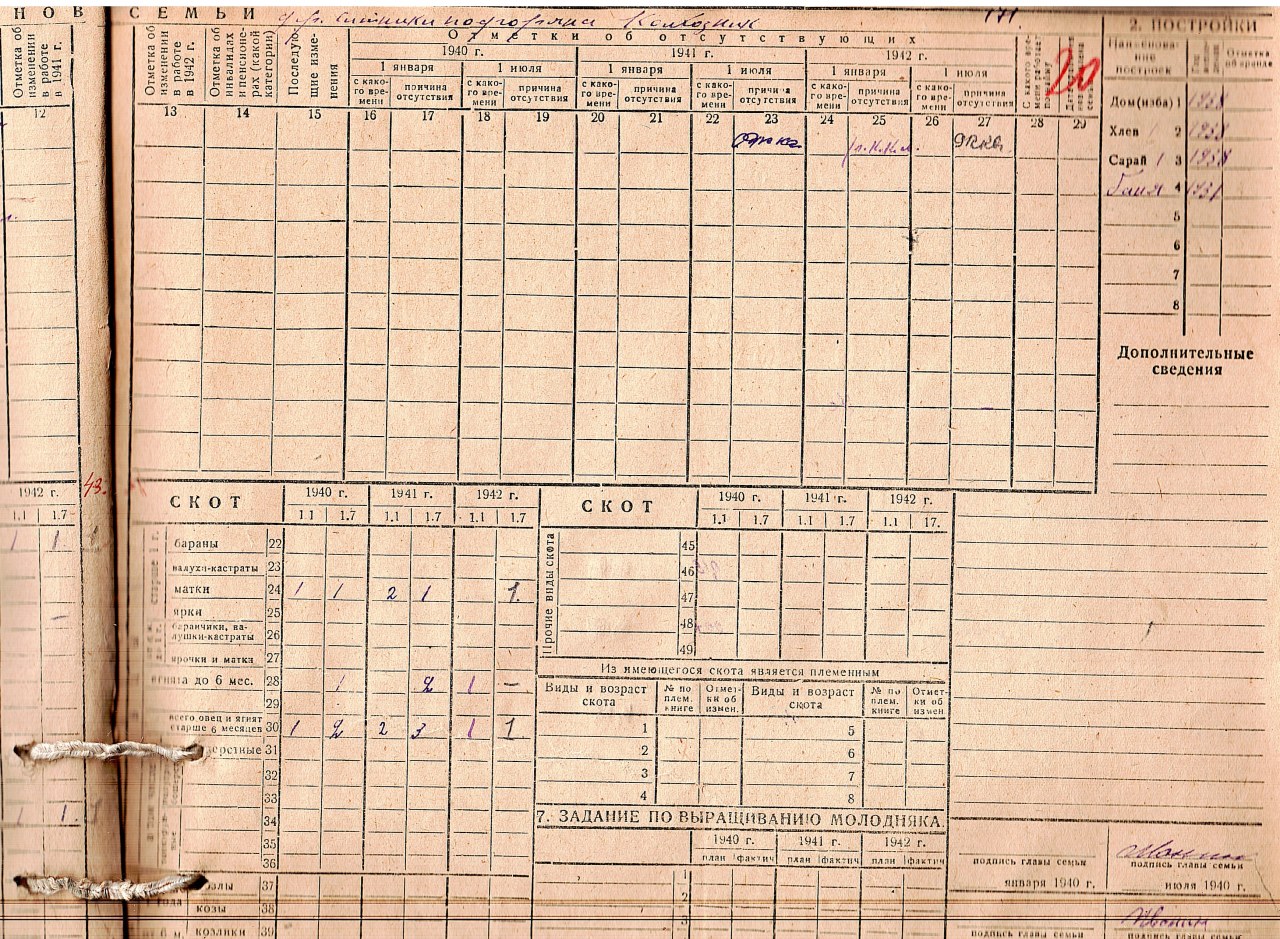 НОВ СЕМЬИ Колхозник 171
Отметка об изменении в работе в 1941 г.
12
Отметка об изменении в работе в 1942 г.
Отметка об инвалидах и пенсионерах (какой категории)
Последующие изменения
Отметки об отсутствующих
1940 г. 1941 г. 1942 г.
1 января 1 июля 1 января 1 июля 1 января 1 июля
с какого времени причина отсутствия с какого времени причина отсутствия с какого времени причина отсутствия с какого времени причина отсутствия с какого времени причина отсутствия с какого времени причина отсутствия
13 14 15 16 17 18 19 20 21 22 23 24 25 26 27 28 29
РККА
20
2. ПОСТРОЙКИ
Наименование построек
Отметка об
Дом (изба) 1 1938
Хлев 1 2 1938
Сарай 1 3 1938
4 1931
5
6
7
8
Дополнительные сведения
1942 г.
1.1 1.7
1 1
1
43.
СКОТ 1940 г. 1941 г. 1942 г.
1.1 1.7 1.1 1.7 1.1 1.7
старше 1 г.
бараны 22
валухи-кастраты 23
матки 24 1 1 2 1 1
ярки 25
баранчики, валушки-кастраты 26
ярочки и матки 27
ягнята до 6 мес. 28 1 2 1 —
29
всего овец и ягнят старше 6 месяцев 30 1 2 2 3 1 1
31
32
33
34
35
36
козлы 37
козы 38
козлики 39
СКОТ 1940 г. 1941 г. 1942 г.
1.1 1.7 1.1 1.7 1.1 17.
Прочие виды скота
45
46
47
48
49
Из имеющегося скота является племенным
Виды и возраст скота № по плем. книге Отметки об измен. Виды и возраст скота № по плем. книге Отметки об измен.
1 5
2 6
3 7
4 8
7. ЗАДАНИЕ ПО ВЫРАЩИВАНИЮ МОЛОДНЯКА.
1940 г. 1941 г. 1942 г.
план фактич план фактич план фактич
1
2
3
подпись главы семьи подпись главы семьи
января 1940 г. июля 1940 г.
подпись главы семьи подпись главы семьи